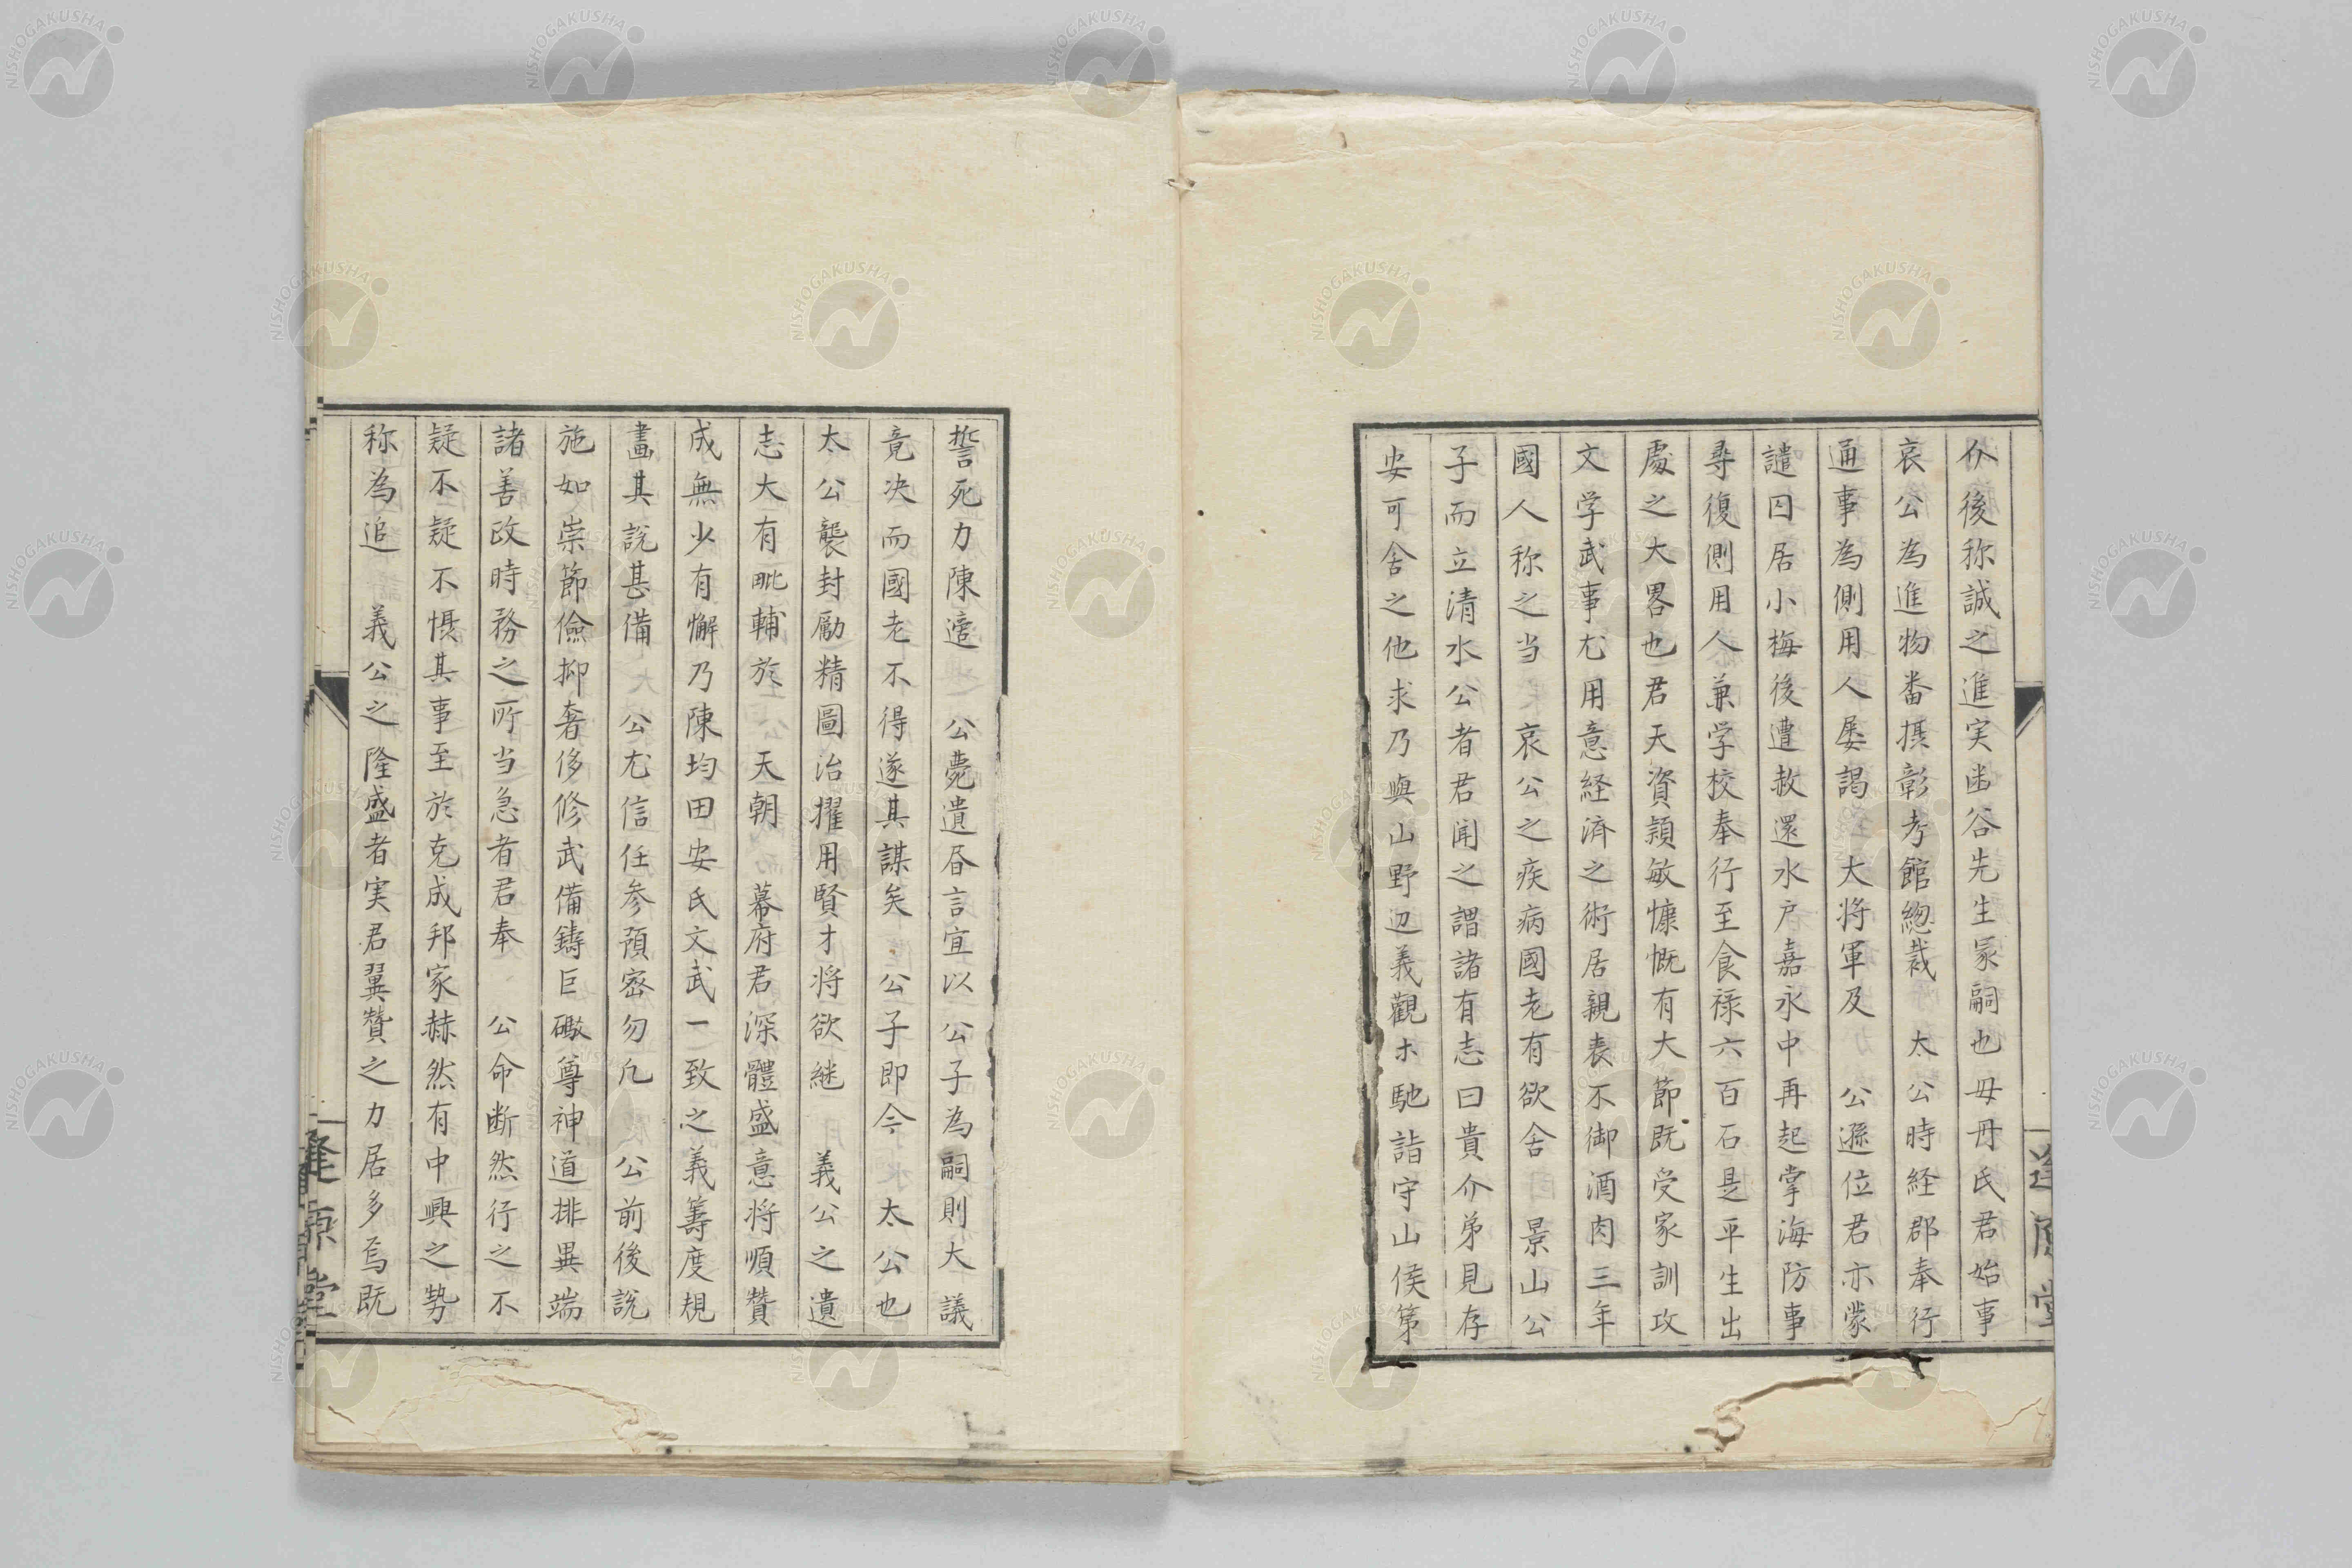 介後称誠之進実幽谷先生冢嗣也母丹氏君始事
哀公為進物番摂彰考館総裁　太公時経郡奉行
通事為側用人屡謁　大将軍及　公遜位君亦蒙
譴囚居小梅後遭赦還水戸嘉永中再起掌海防事
尋復側用人兼学校奉行至食禄六百石是平生出
處之大畧也君天資穎敏慷慨有大節既受家訓攻
文学武事尤用意経済之術居親喪不御酒肉三年
國人称之当　哀公之疾病國老有欲舍　景山公
子而立清水公者君聞之謂諸有志曰貴介弟見存
安可舍之他求乃與山野辺義觀馳詣守山侯第
誓死力陳適　公薨遺㫺言宜以　公子為嗣則大議
竟决而國老不得遂其謀矣　公子即今　太公也
太公襲封勵精圖治擢用賢才将欲継　義公之遺
志大有毗輔於　天朝　幕府君深體盛意将順賛
成無少有懈乃陳均田安民文武一致之義籌度規
畫其說甚備　公尤信任参預密勿凡　公前後說
施如崇節儉抑奢侈修武備鑄巨礮尊神道排異端
諸善政時務之所当急者君奉　公命断然行之不
疑不疑不惧其事至於克成邦家赫然有中興之勢
称為追　義公之隆盛者実君翼賛之力居多焉既
NISHOGAKUSHA